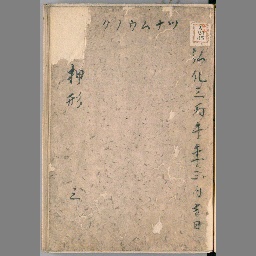 弘化三丙午年三月吉日
ツナムウノク
押形
三